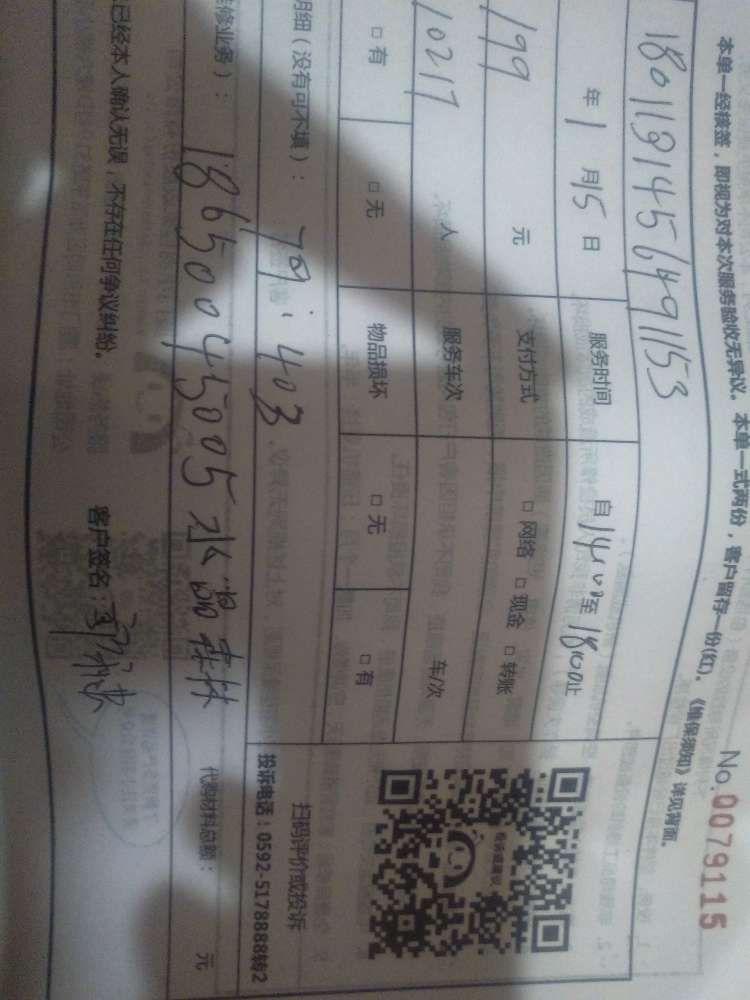 本单一经核签，即视为对本次服务验收无异议。本单一式两份，客户留存一份(红)。《维保须知》详见背面。
No. 0079115
18011814564911153
年 1 月 15 日 服务时间 自 14:00 至 18:00 止
199 元 支付方式 □ 网络 □ 现金 □ 转账
10217 人 服务车次 车/次
□ 有 □ 无 物品损坏 □ 无 □ 有
投诉或建议
明细（没有可不填）： 79. 403
扫码评价或投诉
投诉电话：0592-5178888转2
修业务）： 18650045005 水晶森林 代购材料总额： 元
已经本人确认无误，不存在任何争议纠纷。 客户签名：